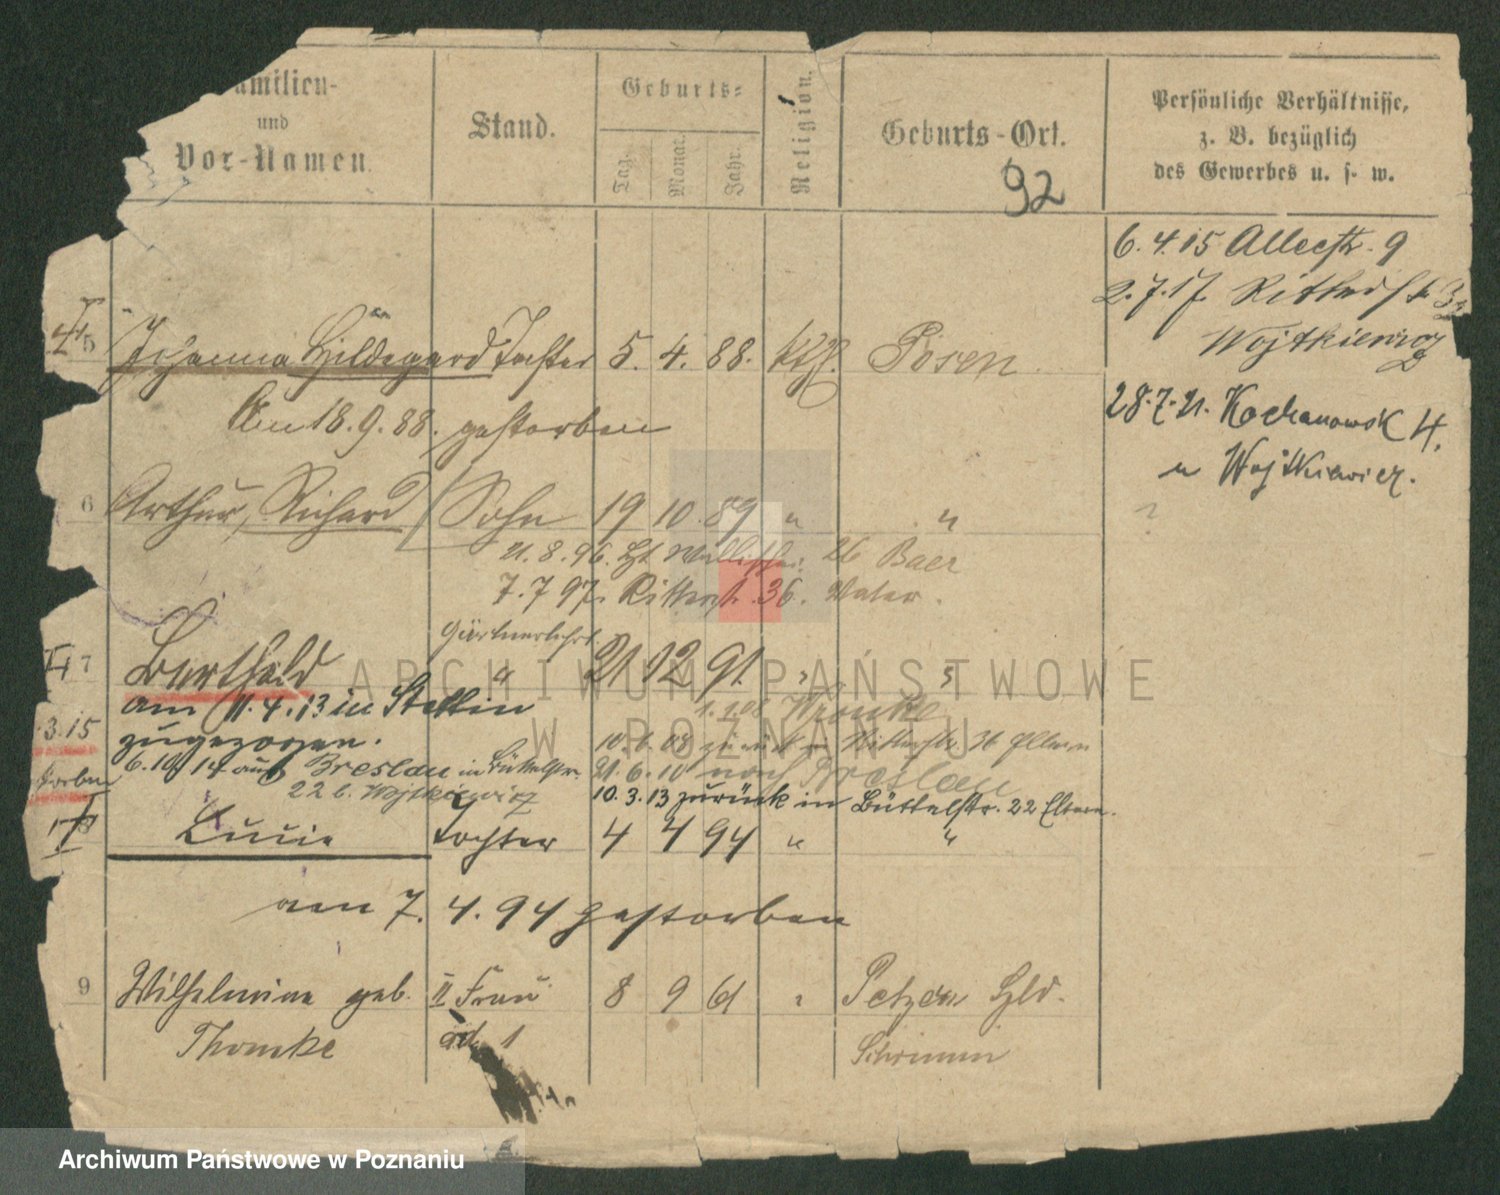 amilien-
und
Vor-Namen.
Stand.
Geburts-
Tag.
Monat.
Jahr.
Religion.
Geburts-Ort.
92
Persönliche Verhältnisse,
z. B. bezüglich
des Gewerbes u. s. w.
6.4.15 Alleestr. 9
2.7.17. Ritterstr.
Wojtkiewicz
28.7.21. Kochanowsk 4.
u Wojtkiewicz.
5 Johanna Hildegard Tochter 5. 4. 88. kth. Posen.
Am 18.9.88. gestorben
6 Arthur, Richard Sohn 19 10 89 " "
21.8.96. 26 Baer
7.7 97. Ritterstr. 36. Vater.
Gärtnerlehrl.
7 Berthold " 21 12 91 " "
am 11.4.13 in Stettin
zugezogen.
3.15
storben
Wronke
10.6.08 zurück n Ritterstr. 36 Eltern
6.10.14 aus Breslau in Büttelstr.
22 b. Wojtkiewicz
21.6.10 nach Breslau
10.3.13 zurück in Büttelstr. 22 Eltern.
Lucie Tochter 4 4 94 " "
am 7. 4. 94 gestorben
9 Wilhelmine geb. II Frau 8 9 61 " Petzen Hld.
Thomke ad 1 Schrimm
ARCHIWUM PAŃSTWOWE
W POZNANIU
Archiwum Państwowe w Poznaniu